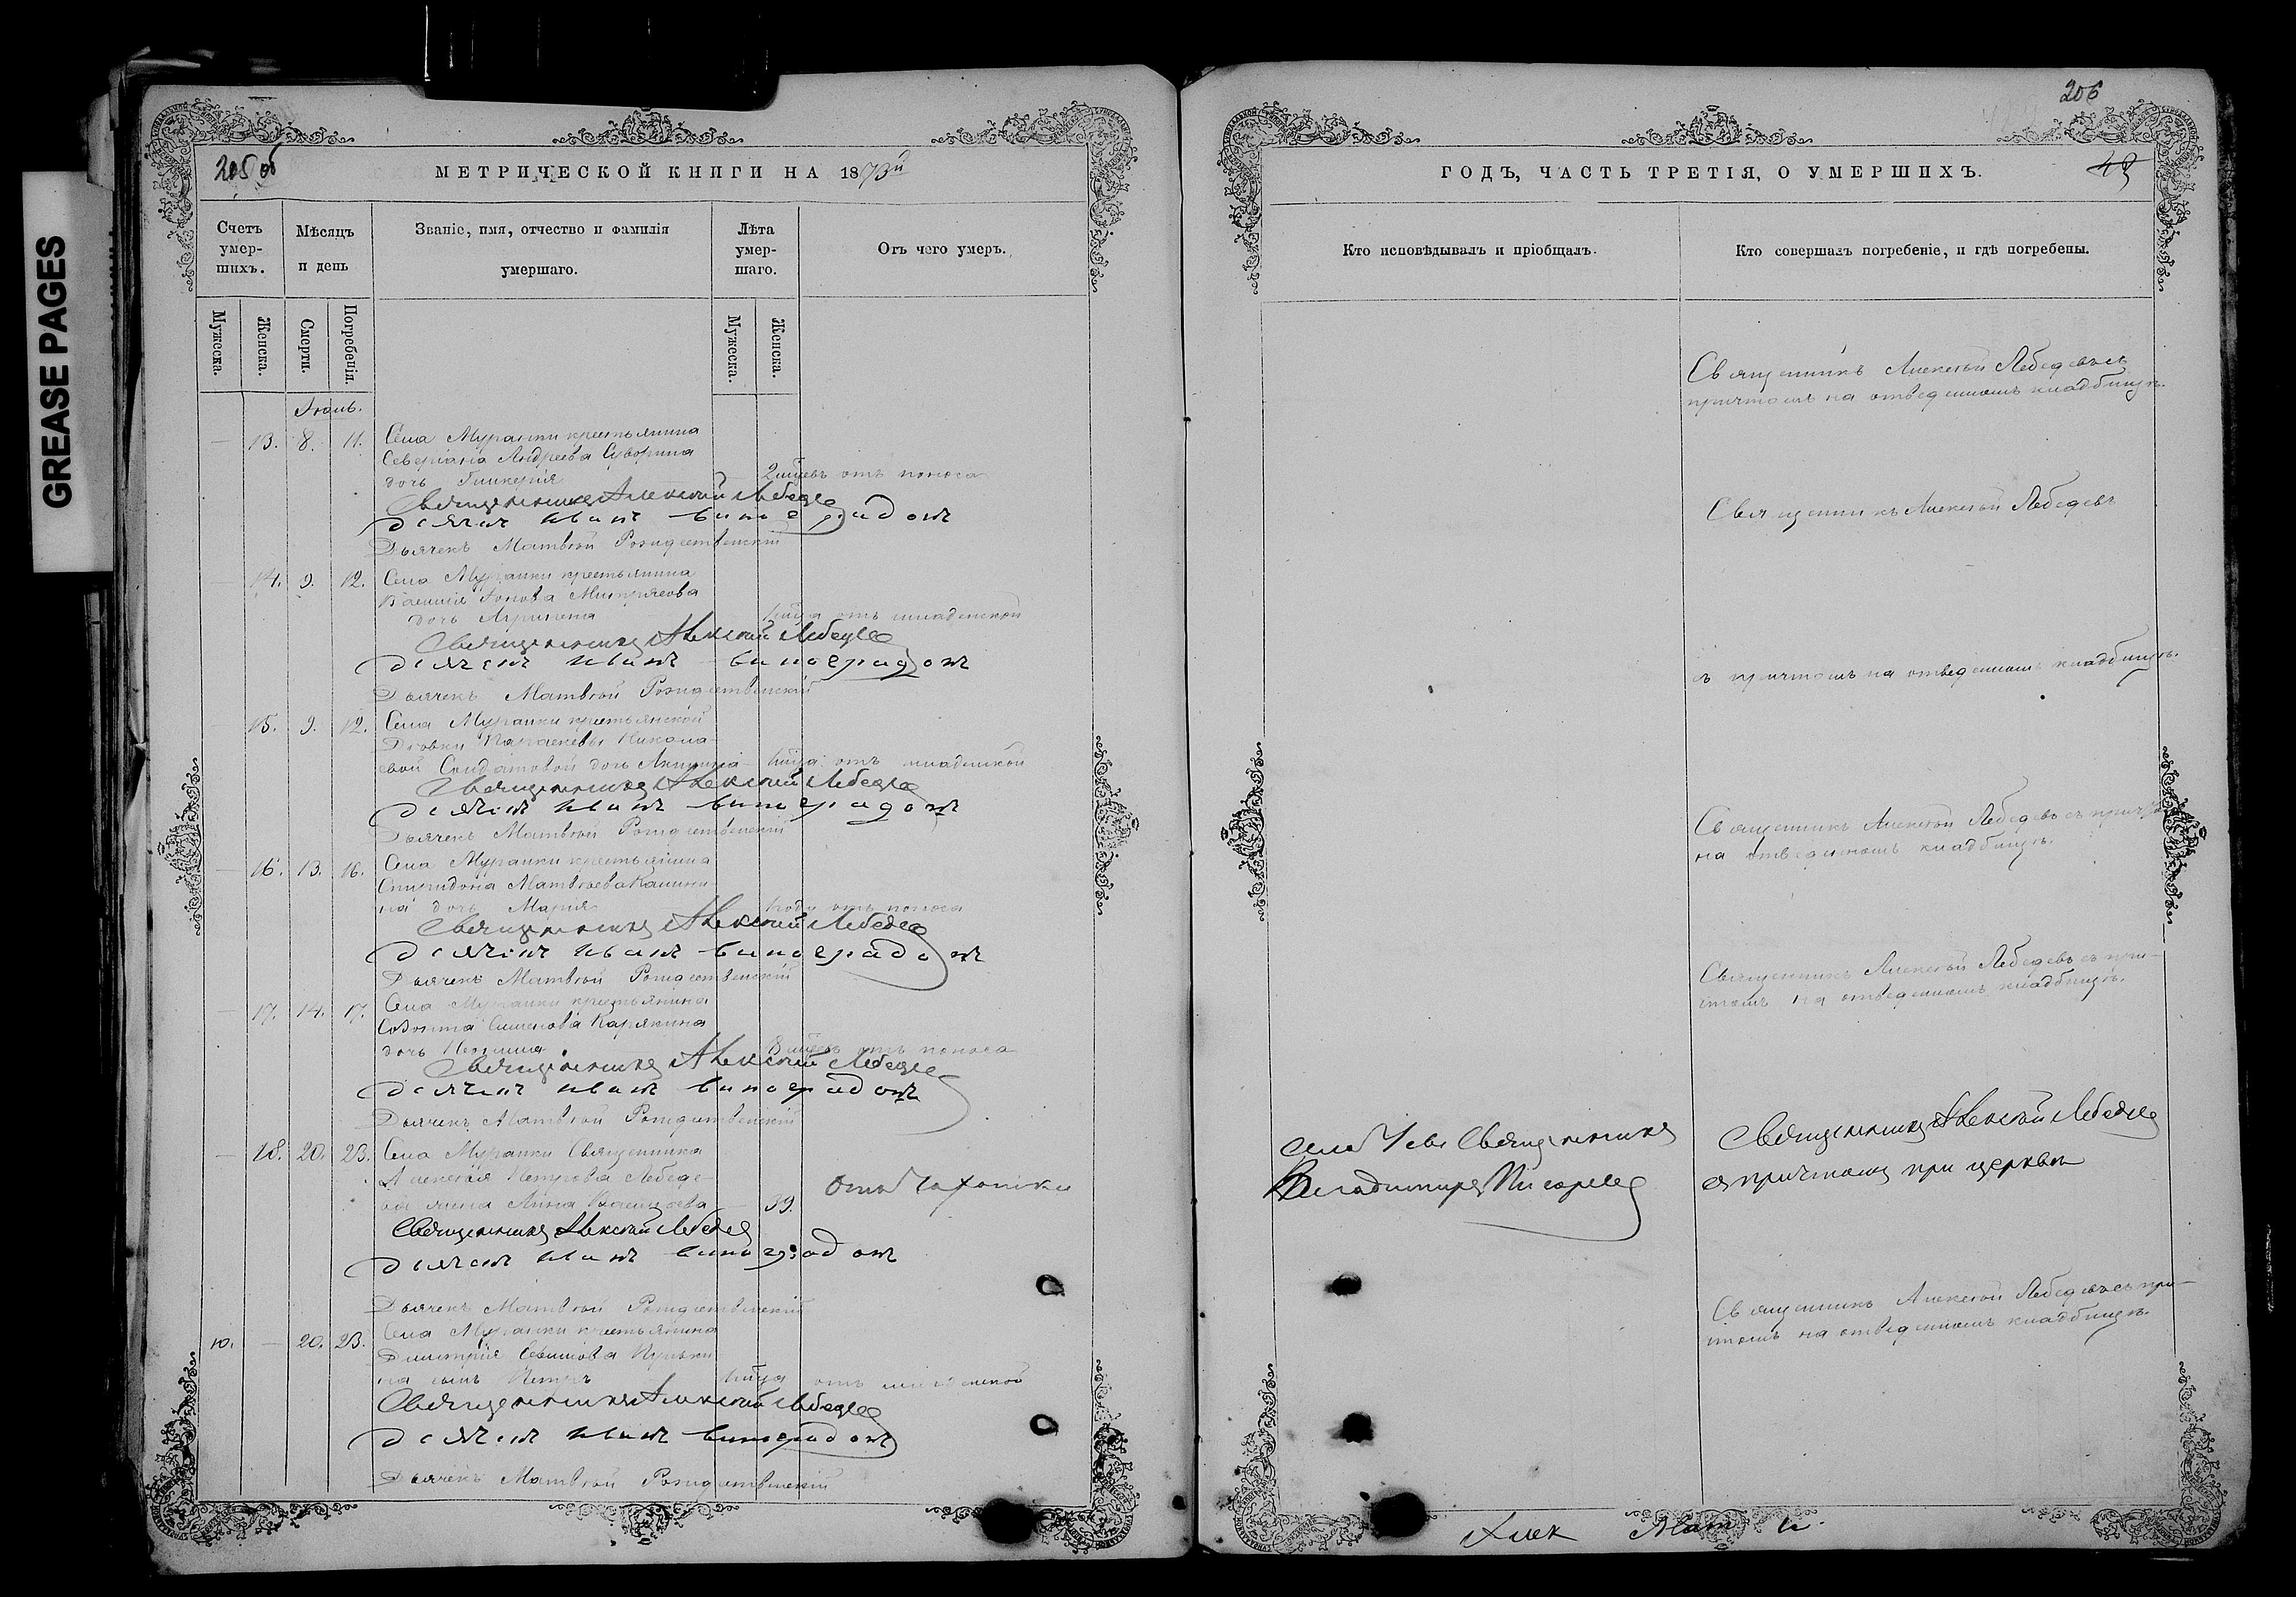 GREASE PAGES
205 об
МЕТРИЧЕСКОЙ КНИГИ НА 1873й
Счетъ умер-шихъ.
Мѣсяцъ и день
Званіе, имя, отчество и фамилія умершаго.
Лѣта умер-шаго.
Отъ чего умеръ.
Мужеска.
Женска.
Смерти.
Погребенія.
Мужеска.
Женска.
Іюль.
— 13. 8. 11. Села Муранки крестьянина
Северіана Андреева Суворина
дочь Гликерія — 2 мцевъ отъ поноса
Священникъ Алексѣй Лебедевъ
дьячекъ Иванъ Виноградовъ
Дьячекъ Матвѣй Рождественскій
— 14. 9. 12. Села Муранки крестьянина
дочь 1 мца отъ младенской
Священникъ Алексѣй Лебедевъ
дьячекъ Иванъ Виноградовъ
Дьячекъ Матвѣй Рождественскій
15. 9. 12. Села Муранки крестьянской
Дѣвки Параскевы Никола-
евой Солдатовой дочь — 1 мца отъ младенской
Священникъ Алексѣй Лебедевъ
дьячекъ Иванъ Виноградовъ
Дьячекъ Матвѣй Рождественскій
— 16. 13. 16. Села Муранки крестьянина
Спиридона Матвѣева Калини-
на дочь Марія 1 году отъ поноса
Священникъ Алексѣй Лебедевъ
дьячекъ Иванъ Виноградовъ
Дьячекъ Матвѣй Рождественскій
— 17. 14. 17. Села Муранки крестьянина
Созонта Симонова Карякина
дочь 8 мцевъ отъ поноса
Священникъ Алексѣй Лебедевъ
дьячекъ Иванъ Виноградовъ
Дьячекъ Матвѣй Рождественскій
— 18. 20. 23. Села Муранки Священника
Алексѣя Петрова Лебеде-
ва жена Анна Васильева — 39. отъ чахотки
Священникъ Алексѣй Лебедевъ
дьячекъ Иванъ Виноградовъ
Дьячекъ Матвѣй Рождественскій
10. — 20. 23. Села Муранки крестьянина
Димитрія
на сынъ Петръ 1 мца отъ младенской
Священникъ Алексѣй Лебедевъ
дьячекъ Иванъ Виноградовъ
Дьячекъ Матвѣй Рождественскій
206
ГОДЪ, ЧАСТЬ ТРЕТІЯ, О УМЕРШИХЪ.
Кто исповѣдывалъ и пріобщалъ.
Кто совершалъ погребеніе, и гдѣ погребены.
Священникъ Алексѣй Лебедевъ съ
причтомъ на отведенномъ кладбищѣ.
Священникъ Алексѣй Лебедевъ
съ причтомъ на отведенномъ кладбищѣ.
Священникъ Алексѣй Лебедевъ съ причтомъ
на отведенномъ кладбищѣ.
Священникъ Алексѣй Лебедевъ съ при-
чтомъ на отведенномъ кладбищѣ.
села Священникъ
Владимиръ Писаревъ
Священникъ Алексѣй Лебедевъ
съ причтомъ при церкви
Священникъ Алексѣй Лебедевъ съ при-
чтомъ на отведенномъ кладбищѣ.